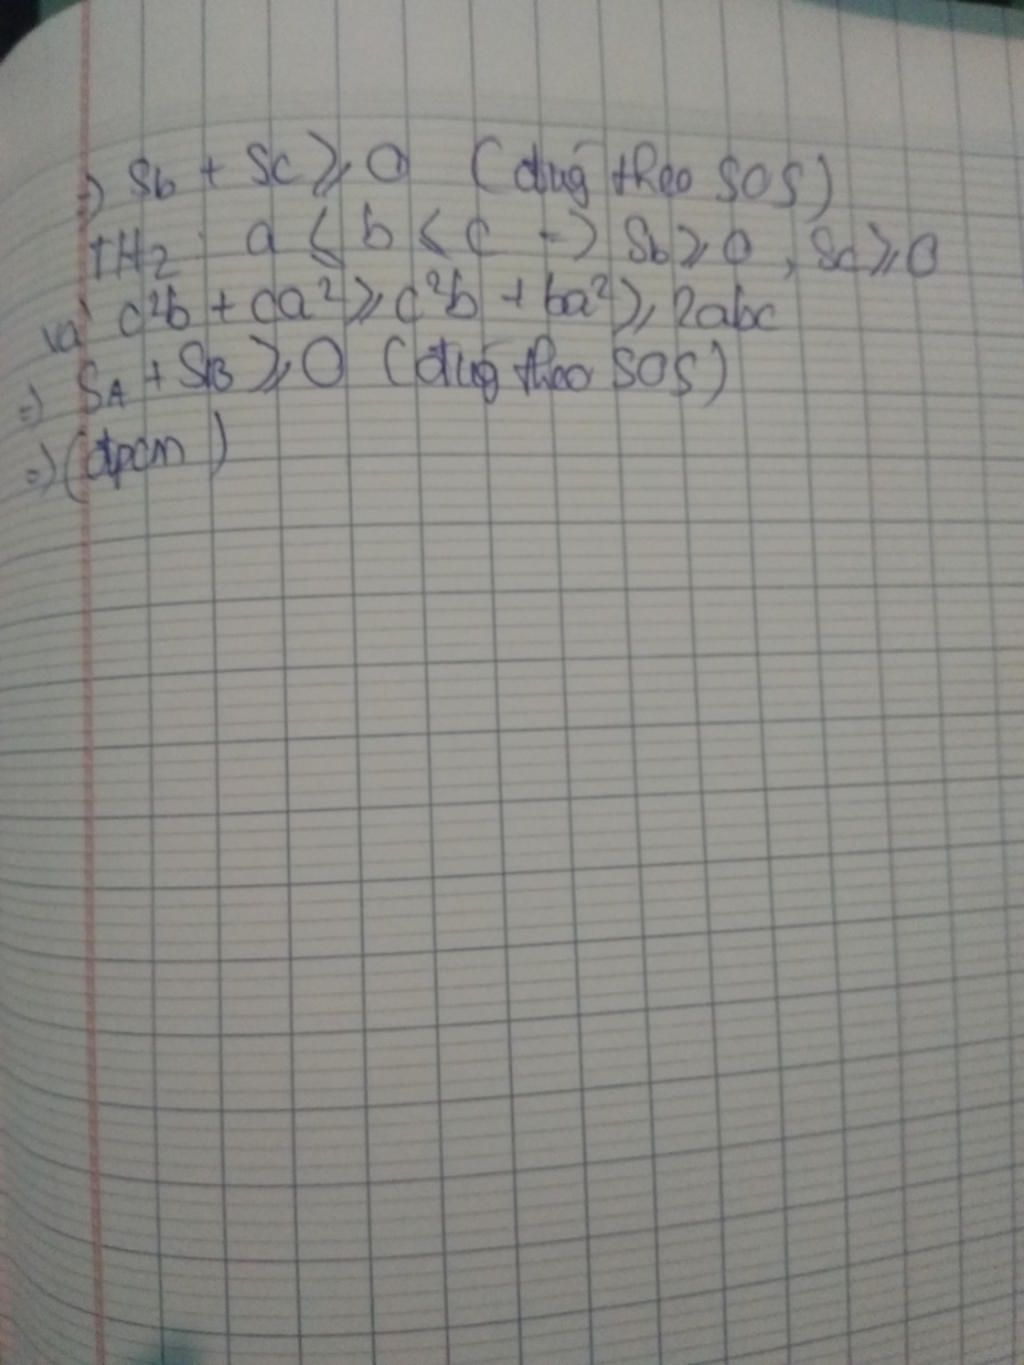 =) Sb + Sc ⩾ 0 (đúg theo SOS)
TH2: a ⩽ b ⩽ c -) Sb ⩾ 0, Sc ⩾ 0
và c²b + ca² ⩾ c²b + ba² ⩾ 2abc
=) SA + SB ⩾ 0 (đúg theo SOS)
=) (đpcm)